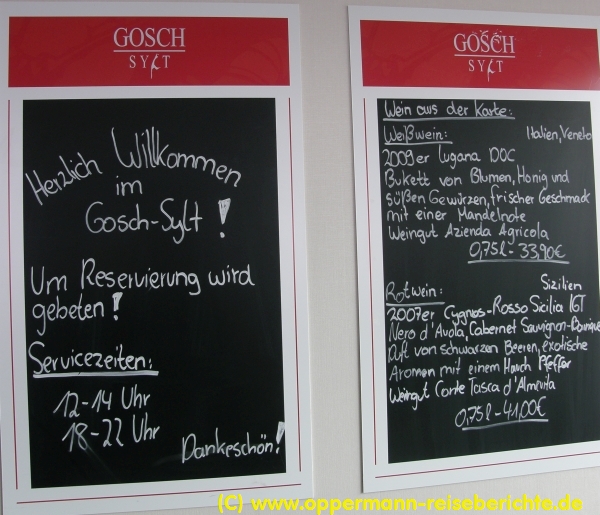 GOSCH
SYLT
Herzlich Willkommen
im
Gosch-Sylt!
Um Reservierung wird
gebeten!
Servicezeiten:
12-14 Uhr
18-22 Uhr
Dankeschön!
GOSCH
SYLT
Wein aus der Karte:
Weißwein: Italien, Veneto
2009er Lugana DOC
Bukett von Blumen, Honig und
süßen Gewürzen, frischer Geschmack
mit einer Mandelnote
Weingut Azienda Agricola
0,75l - 33,90€
Sizilien
Rotwein:
2007er Cygnus-Rosso Sicilia IGT
Nero d'Avola, Cabernet Sauvignon-
Duft von schwarzen Beeren, exotische
Aromen mit einem Hauch Pfeffer
Weingut Conte Tasca d'Almerita
0,75l - 41,00€
(C) www.oppermann-reiseberichte.de